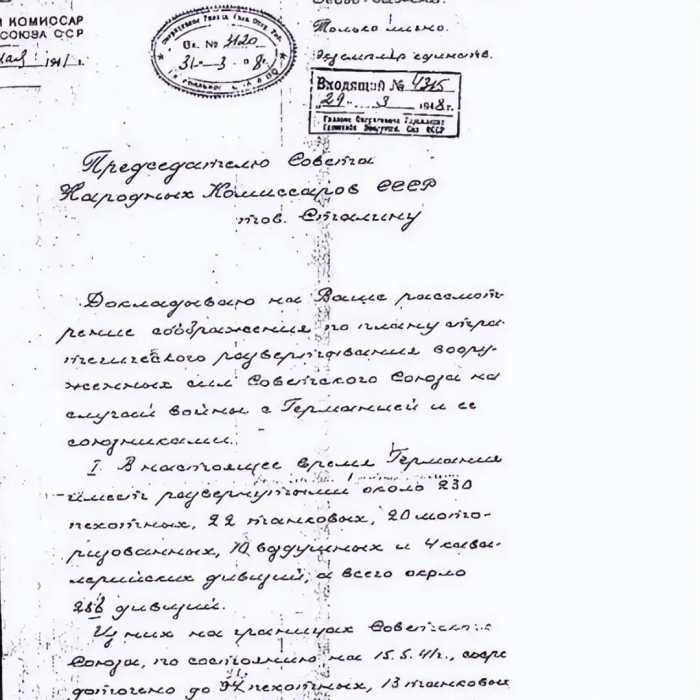 КОМИССАР
СОЮЗА ССР
1941 г.
Вх. № 3120
31 - 3 - 8 г.
Только лично.
Экземпляр единств.
Входящий № 4315
„29" 3 1948 г.
Председателю Совета
Народных Комиссаров СССР
тов. Сталину
Докладываю на Ваше рассмот-
рение соображения по плану стра-
тегического развертывания воору-
женных сил Советского Союза на
случай войны с Германией и ее
союзниками.
I. В настоящее время Германия
имеет развернутыми около 230
пехотных, 22 танковых, 20 мото-
ризованных, 10 воздушных и 4 кава-
лерийских дивизий, а всего около
286 дивизий.
Из них на границах Советского
Союза, по состоянию на 15.5.41г., сосре
доточено до пехотных, 13 танковых